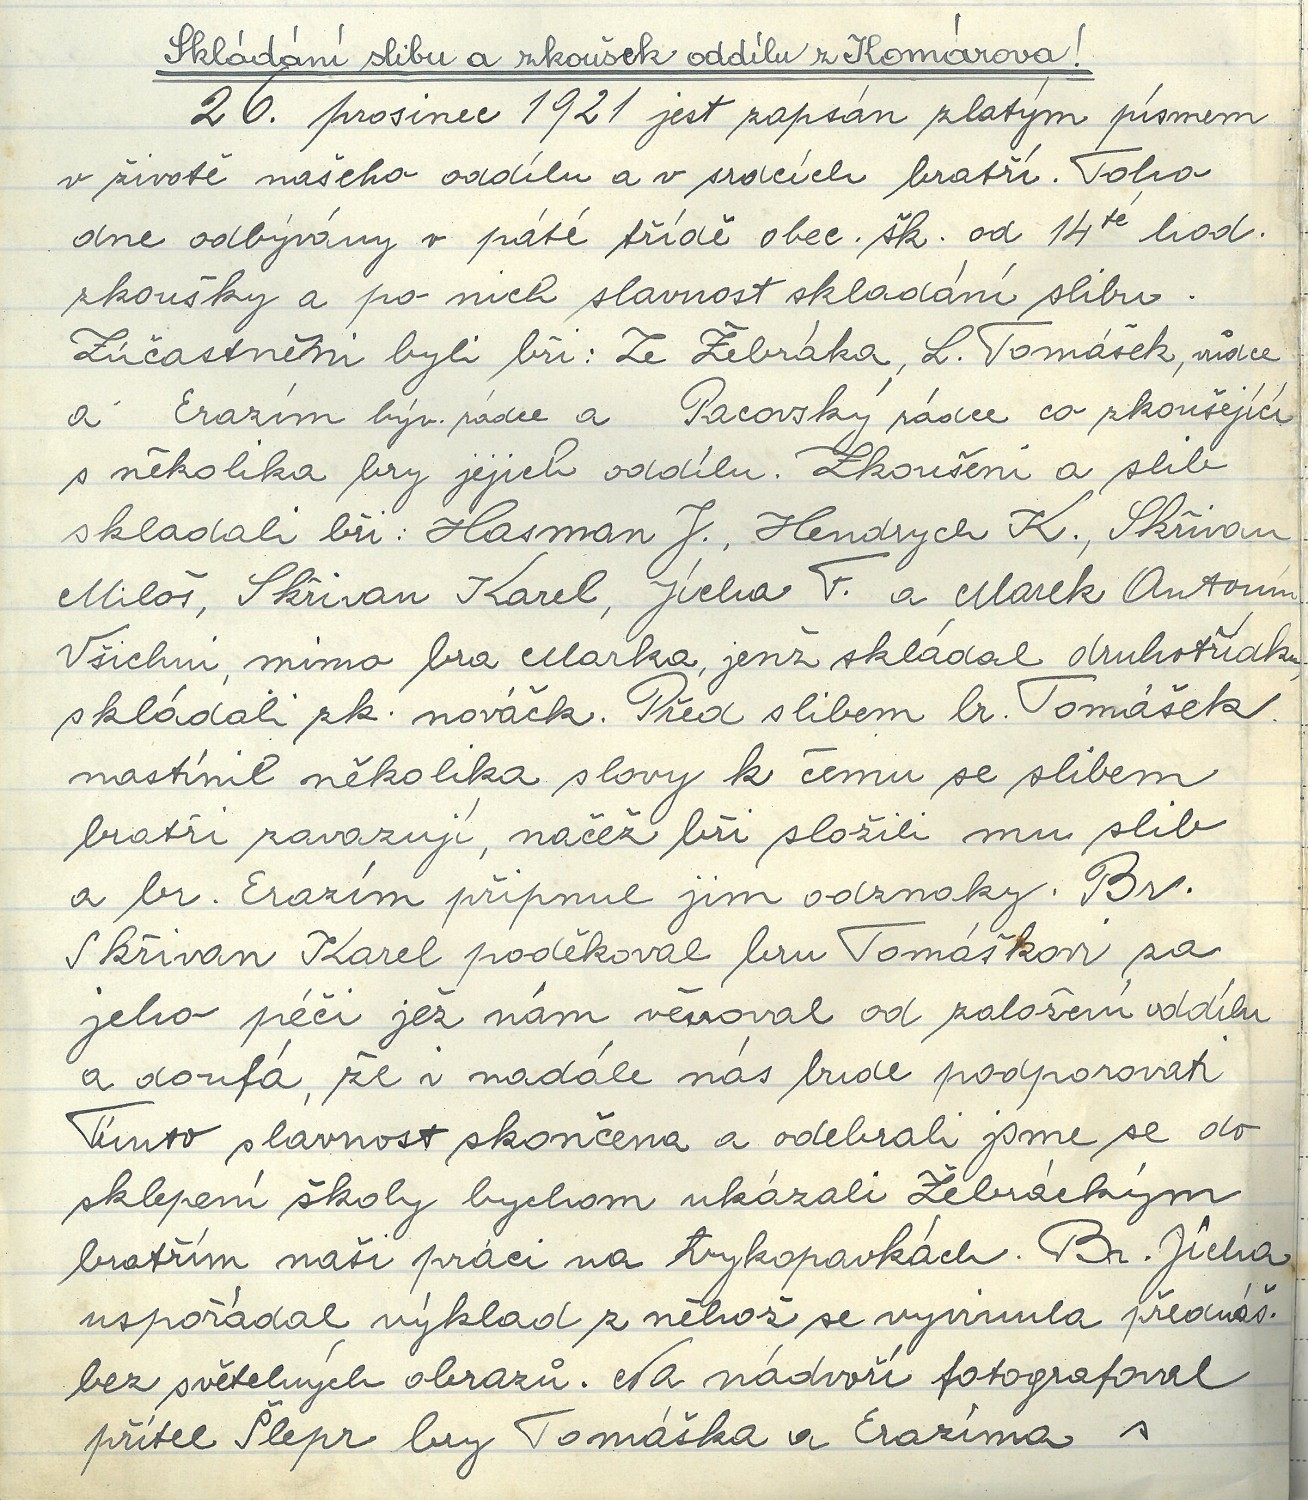 Skládání slibu a zkoušek oddílu z Komárova!
26. prosinec 1921 jest zapsán zlatým písmem
v životě našeho oddílu a v srdcích bratří. Toho
dne odbývány v páté třídě obec. šk. od 14té hod.
zkoušky a po nich slavnost skladání slibu.
Zúčastněni byli bři: Ze Žebráka, L. Tomášek, vůdce
a Erazím býv. rádce a Pacovský rádce co zkoušející
s několika bry jejich oddílu. Zkoušeni a slib
skladali bři: Hasman J., Hendrych K., Skřivan
Miloš, Skřivan Karel, Jícha V. a Marek Antonín
Všichni, mimo bra Marka, jenž skládal druhotřídku,
skládali zk. nováčk. Před slibem br. Tomášek
nastínil několika slovy k čemu se slibem
bratři zavazují, načež bři složili mu slib
a br. Erazím připnul jim odznaky. Br.
Skřivan Karel poděkoval bru Tomáškovi za
jeho péči jež nám věnoval od založení oddílu
a doufá, že i nadále nás bude podporovati
Tímto slavnost skončena a odebrali jsme se do
sklepení školy bychom ukázali Žebráckým
bratřím naši práci na vykopavkách. Br. Jícha
uspořádal výklad z něhož se vyvinula přednáš.
bez světelných obrazů. Na nádvoří fotografoval
přítel Šlepr bry Tomáška a Erazíma s